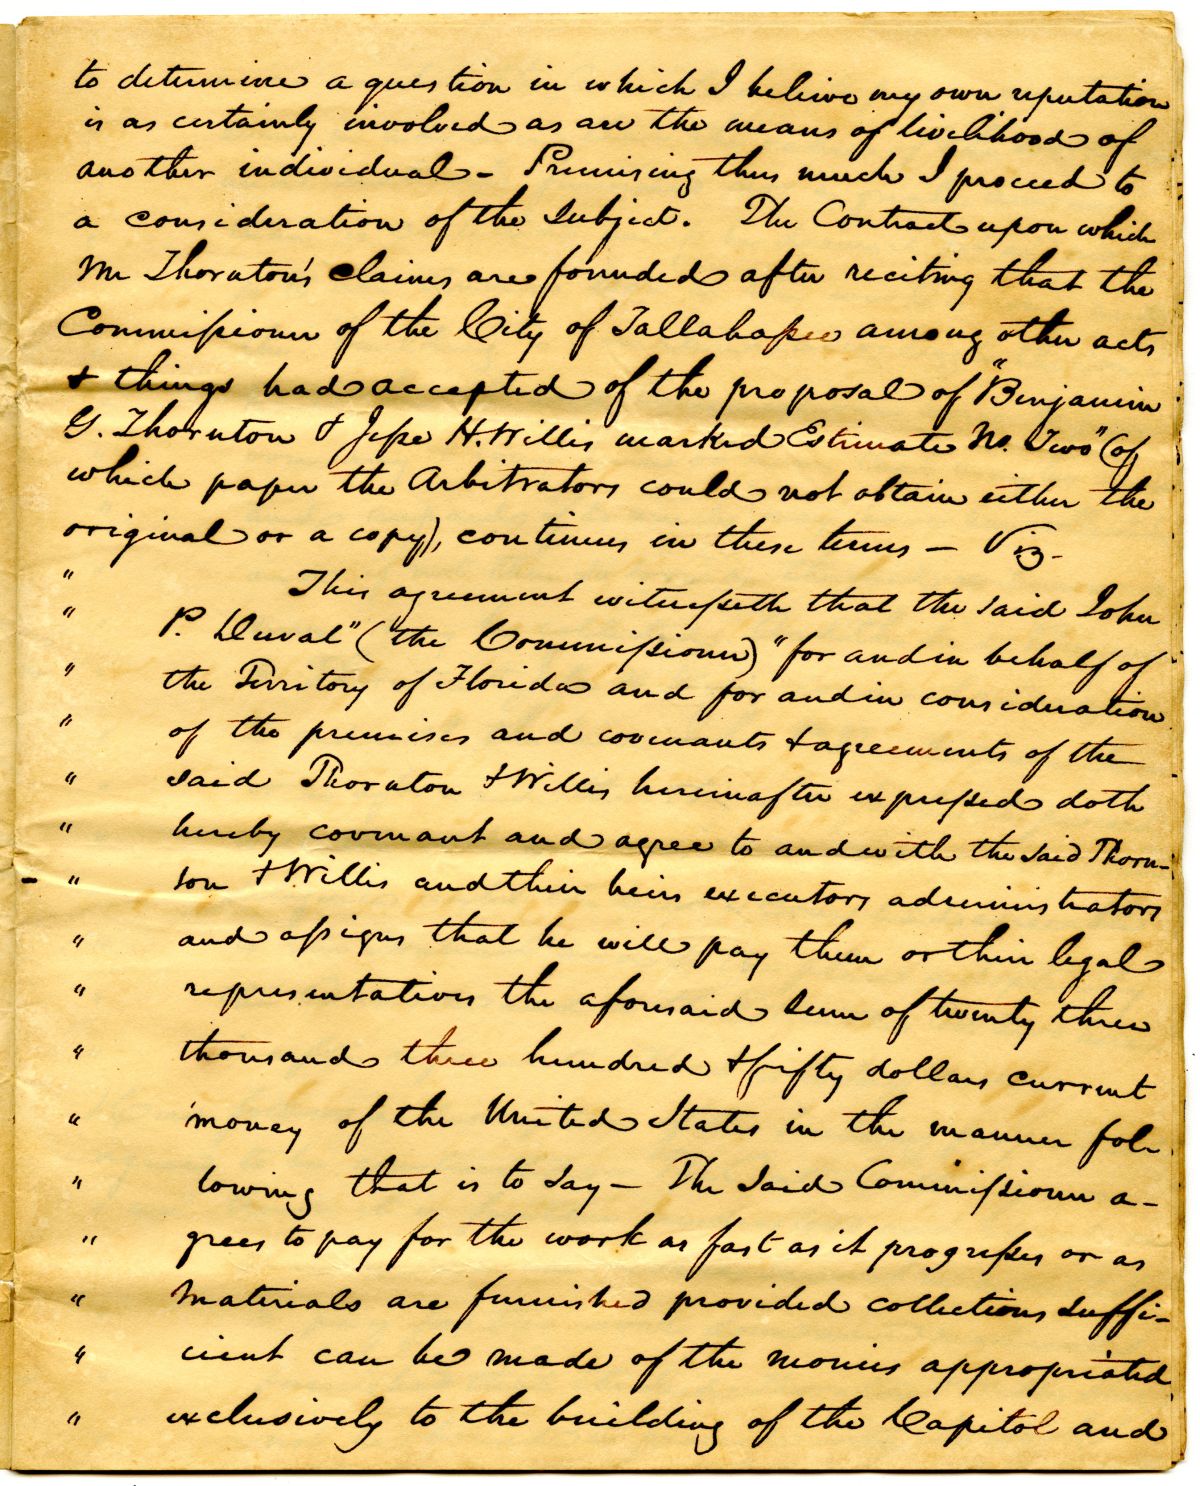 to determine a question in which I believe my own reputation
is as certainly involved as are the means of livelihood of
another individual - Premising thus much I proceed to
a consideration of the Subject. The Contract upon which
Mr Thornton's claims are founded after reciting that the
Commissioner of the City of Tallahassee among other acts
& things had accepted of the proposal of "Benjamin
G. Thornton & Jesse H. Willis marked Estimate No. Two" (of
which paper the Arbitrators could not obtain either the
original or a copy), continues in these terms — Viz.
" This agreement witnesseth that the said John
" P. Duval" (the Commissioner) "for and in behalf of
" the Territory of Florida and for and in consideration
" of the premises and covenants & agreements of the
" said Thornton & Willis hereinafter expressed doth
" hereby covenant and agree to and with the said Thorn-
- " ton & Willis and their heirs executors administrators
" and assigns that he will pay them or their legal
" representatives the aforesaid Sum of twenty three
" thousand three hundred & fifty dollars current
" money of the United States in the manner fol-
" lowing that is to say — The Said Commissioner a-
" grees to pay for the work as fast as it progresses or as
" materials are furnished provided collections suffi-
" cient can be made of the monies appropriated
" exclusively to the building of the Capitol and